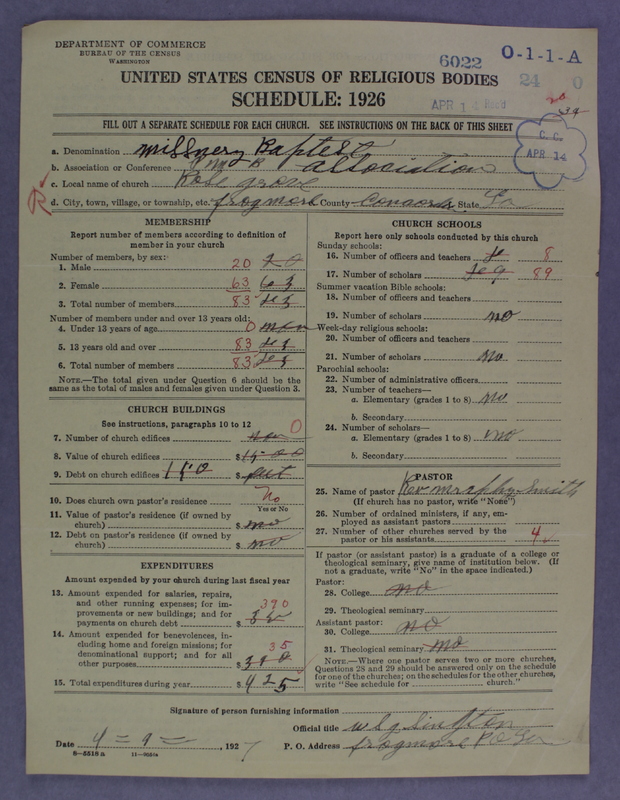 DEPARTMENT OF COMMERCE
BUREAU OF THE CENSUS
WASHINGTON
6022 O-1-1-A
24 0
UNITED STATES CENSUS OF RELIGIOUS BODIES
SCHEDULE: 1926
APR 14
FILL OUT A SEPARATE SCHEDULE FOR EACH CHURCH. SEE INSTRUCTIONS ON THE BACK OF THIS SHEET
C. C.
APR 14
a. Denomination Missnery Baptest
b. Association or Conference association
c. Local name of church Rose grove
d. City, town, village, or township, etc. frogmore County Concorda State La
MEMBERSHIP
Report number of members according to definition of member in your church
Number of members, by sex:
1. Male 20 20
2. Female 63 63
3. Total number of members 83
Number of members under and over 13 years old:
4. Under 13 years of age 0
5. 13 years old and over 83
6. Total number of members 83
NOTE.—The total given under Question 6 should be the same as the total of males and females given under Question 3.
CHURCH BUILDINGS
See instructions, paragraphs 10 to 12
7. Number of church edifices 0
8. Value of church edifices $ 1500
9. Debt on church edifices 150 $
10. Does church own pastor's residence No
Yes or No
11. Value of pastor's residence (if owned by church) $ no
12. Debt on pastor's residence (if owned by church) $ no
EXPENDITURES
Amount expended by your church during last fiscal year
13. Amount expended for salaries, repairs, and other running expenses; for improvements or new buildings; and for payments on church debt $ 390
14. Amount expended for benevolences, including home and foreign missions; for denominational support; and for all other purposes 35 $ 390
15. Total expenditures during year $ 425
CHURCH SCHOOLS
Report here only schools conducted by this church
Sunday schools:
16. Number of officers and teachers 8
17. Number of scholars 89
Summer vacation Bible schools:
18. Number of officers and teachers
19. Number of scholars no
Week-day religious schools:
20. Number of officers and teachers
21. Number of scholars no
Parochial schools:
22. Number of administrative officers
23. Number of teachers—
a. Elementary (grades 1 to 8) no
b. Secondary
24. Number of scholars—
a. Elementary (grades 1 to 8) no
b. Secondary
PASTOR
25. Name of pastor Rev Smith
(If church has no pastor, write "None")
26. Number of ordained ministers, if any, employed as assistant pastors
27. Number of other churches served by the pastor or his assistants 4
If pastor (or assistant pastor) is a graduate of a college or theological seminary, give name of institution below. (If not a graduate, write "No" in the space indicated.)
Pastor:
28. College no
29. Theological seminary
Assistant pastor:
30. College no
31. Theological seminary no
NOTE.—Where one pastor serves two or more churches, Questions 28 and 29 should be answered only on the schedule for one of the churches; on the schedules for the other churches, write "See schedule for church."
Signature of person furnishing information
Official title
Date 4 - 9 -, 1927 P. O. Address frogmore P O La
8-5518 a